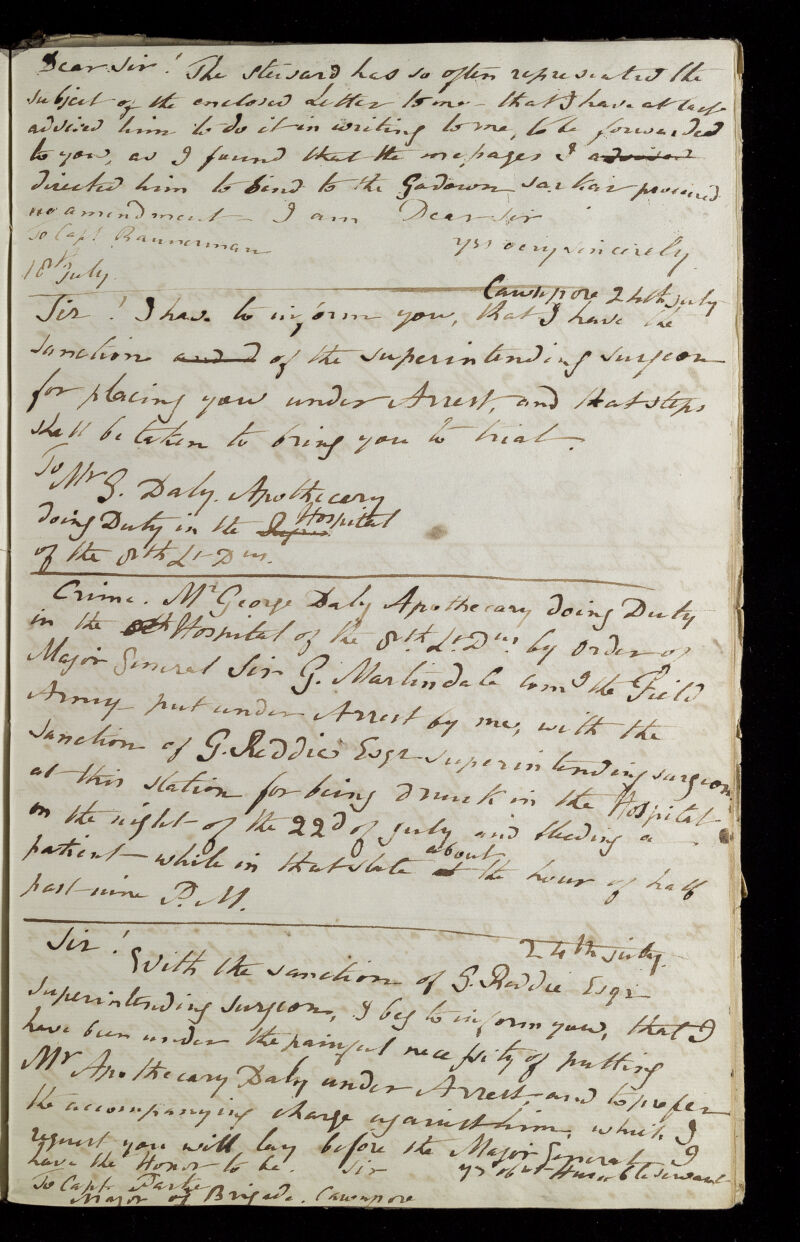 Dear Sir! The steward has so often represented the
subject of the enclosed Letter to me - that I have at last
advised him to do it in writing to me, to be forwarded
to you, as I found that the messages I advised
directed him to send to the Godown sarkar procured
no amendment - I am Dear Sir
To Capt. Bannerman yrs very sincerely
18th July.
Cawnpore 24th July
Sir! I have to inform you, that I have the
sanction and d of the superintending surgeon
for placing you under Arrest, and that steps
shall be taken to bring you to trial.
To
Mr G. Daly. Apothecary
doing Duty in the Hospital
of the 8th Lt. Dns.
Crime. Mr George Daly Apothecary doing Duty
in the Hospital of the 8th Lt. Dns by order of
Major General Sir G. Martindale comg the Field
Army put under Arrest by me, with the
sanction of G. Reddie Esqr superintending surgeon
at this station for being drunk in the Hospital
on the night of the 22d of July and bleeding a
patient - while in that state about the hour of half
past nine P.M.
24th July.
Sir!
With the sanction of G. Reddie Esqr
superintending surgeon, I beg to inform you, that I
have been under the painful necessity of putting
Mr Apothecary Daly under Arrest - and to prefer
the accompanying charge against him, which I
request you will lay before the Major General. I
have the Honor to be. Sir yr obt Humble Servant
To Capt. Parke
Major of Brigade. Cawnpore